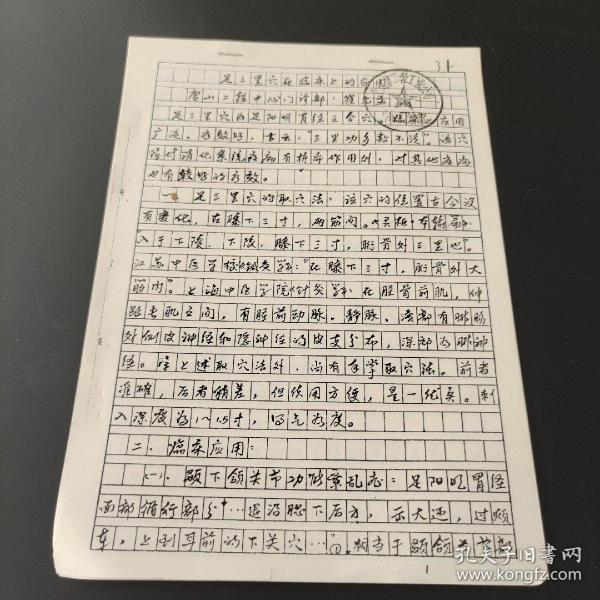 31
足三里穴在临床上的应用
唐山二轻中心门诊部
足三里穴为足阳明胃经之合穴。临床应用
广泛。疗效好，书云："三里功多数不清"。该穴
除对消化系统疾病有特异作用外，对其他疾病
也有较好的疗效。
一、足三里穴的取穴法：该穴的位置古今没
有变化，在膝下三寸，两筋间。《灵枢·本输》：
"入于下陵，下陵，膝下三寸，胻骨外三里也"。
江苏中医学校《针灸学》："在膝下三寸，胻骨外大
筋内"。上海中医学院《针灸学》：在胫骨前肌，伸
趾长肌之间，有胫前动脉、静脉，浅部有腓肠
外侧皮神经和隐神经的皮支分布，深部为腓神
经。除上述取穴法外，尚有手掌取穴法。前者
准确，后者稍差，但使用方便，是一优点。刺
入深度为1～1.5寸，得气为度。
二、临床应用：
(一)、颞下颌关节功能紊乱症：足阳明胃经
面部循行部分"……退沿腮下后方，云大迎，过颊
车，上到耳前的下关穴……"①，相当于颞颌关节部
1
孔夫子旧书网
www.kongfz.com